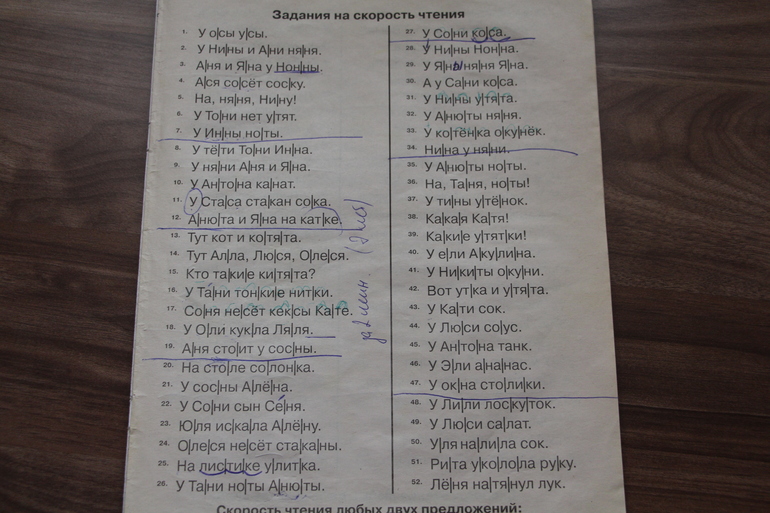 Задания на скорость чтения
1. У о|сы у|сы.
2. У Ни|ны и А|ни ня|ня.
3. А|ня и Я|на у Нон|ны.
4. А|ся со|сёт сос|ку.
5. На, ня|ня, Ни|ну!
6. У То|ни нет у|тят.
7. У Ин|ны но|ты.
8. У тё|ти То|ни Ин|на.
9. У ня|ни А|ня и Я|на.
10. У Ан|то|на ка|нат.
11. У Ста|са ста|кан со|ка.
12. А|ню|та и Я|на на кат|ке.
13. Тут кот и ко|тя|та.
14. Тут Ал|ла, Лю|ся, О|ле|ся.
15. Кто та|ки|е ки|тя|та?
16. У Та|ни тон|ки|е нит|ки.
17. Со|ня не|сёт кек|сы Ка|те.
18. У О|ли кук|ла Ля|ля.
19. А|ня сто|ит у сос|ны.
20. На сто|ле со|лон|ка.
21. У сос|ны А|лё|на.
22. У Со|ни сын Се|ня.
23. Ю|ля ис|ка|ла А|лё|ну.
24. О|ле|ся не|сёт ста|ка|ны.
25. На лис|ти|ке у|лит|ка.
26. У Та|ни но|ты А|ню|ты.
27. У Со|ни ко|са.
28. У Ни|ны Нон|на.
29. У Я|ны ня|ня Я|на.
30. А у Са|ни ко|са.
31. У Ни|ны у|тя|та.
32. У А|ню|ты ня|ня.
33. У ко|тён|ка о|ку|нёк.
34. Ни|на у ня|ни.
35. У А|ню|ты но|ты.
36. На, Та|ня, но|ты!
37. У ти|ны у|тё|нок.
38. Ка|ка|я Ка|тя!
39. Ка|ки|е у|тят|ки!
40. У е|ли А|ку|ли|на.
41. У Ни|ки|ты о|ку|ни.
42. Вот ут|ка и у|тя|та.
43. У Ка|ти сок.
44. У Лю|си со|ус.
45. У Ан|то|на танк.
46. У Э|ли а|на|нас.
47. У ок|на сто|ли|ки.
48. У Ли|ли лос|ку|ток.
49. У Лю|си са|лат.
50. У|ля на|ли|ла сок.
51. Ри|та у|ко|ло|ла ру|ку.
52. Лё|ня на|тя|нул лук.
Скорость чтения любых двух предложений: